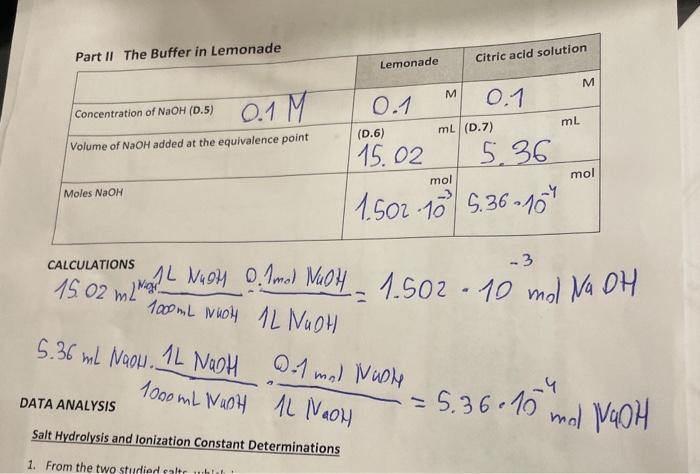 Part II The Buffer in Lemonade
Lemonade Citric acid solution
Concentration of NaOH (D.5) 0.1 M 0.1 M 0.1 M
Volume of NaOH added at the equivalence point (D.6) mL (D.7) mL
15.02 5.36
Moles NaOH mol mol
1.502 · 10⁻³ 5.36 · 10⁻⁴
CALCULATIONS
15.02 mL NaOH 1L NaOH / 1000mL NaOH · 0.1mol NaOH / 1L NaOH = 1.502 · 10⁻³ mol NaOH
5.36 mL NaOH · 1L NaOH / 1000 mL NaOH · 0.1 mol NaOH / 1L NaOH = 5.36 · 10⁻⁴ mol NaOH
DATA ANALYSIS
Salt Hydrolysis and Ionization Constant Determinations
1. From the two studied salts